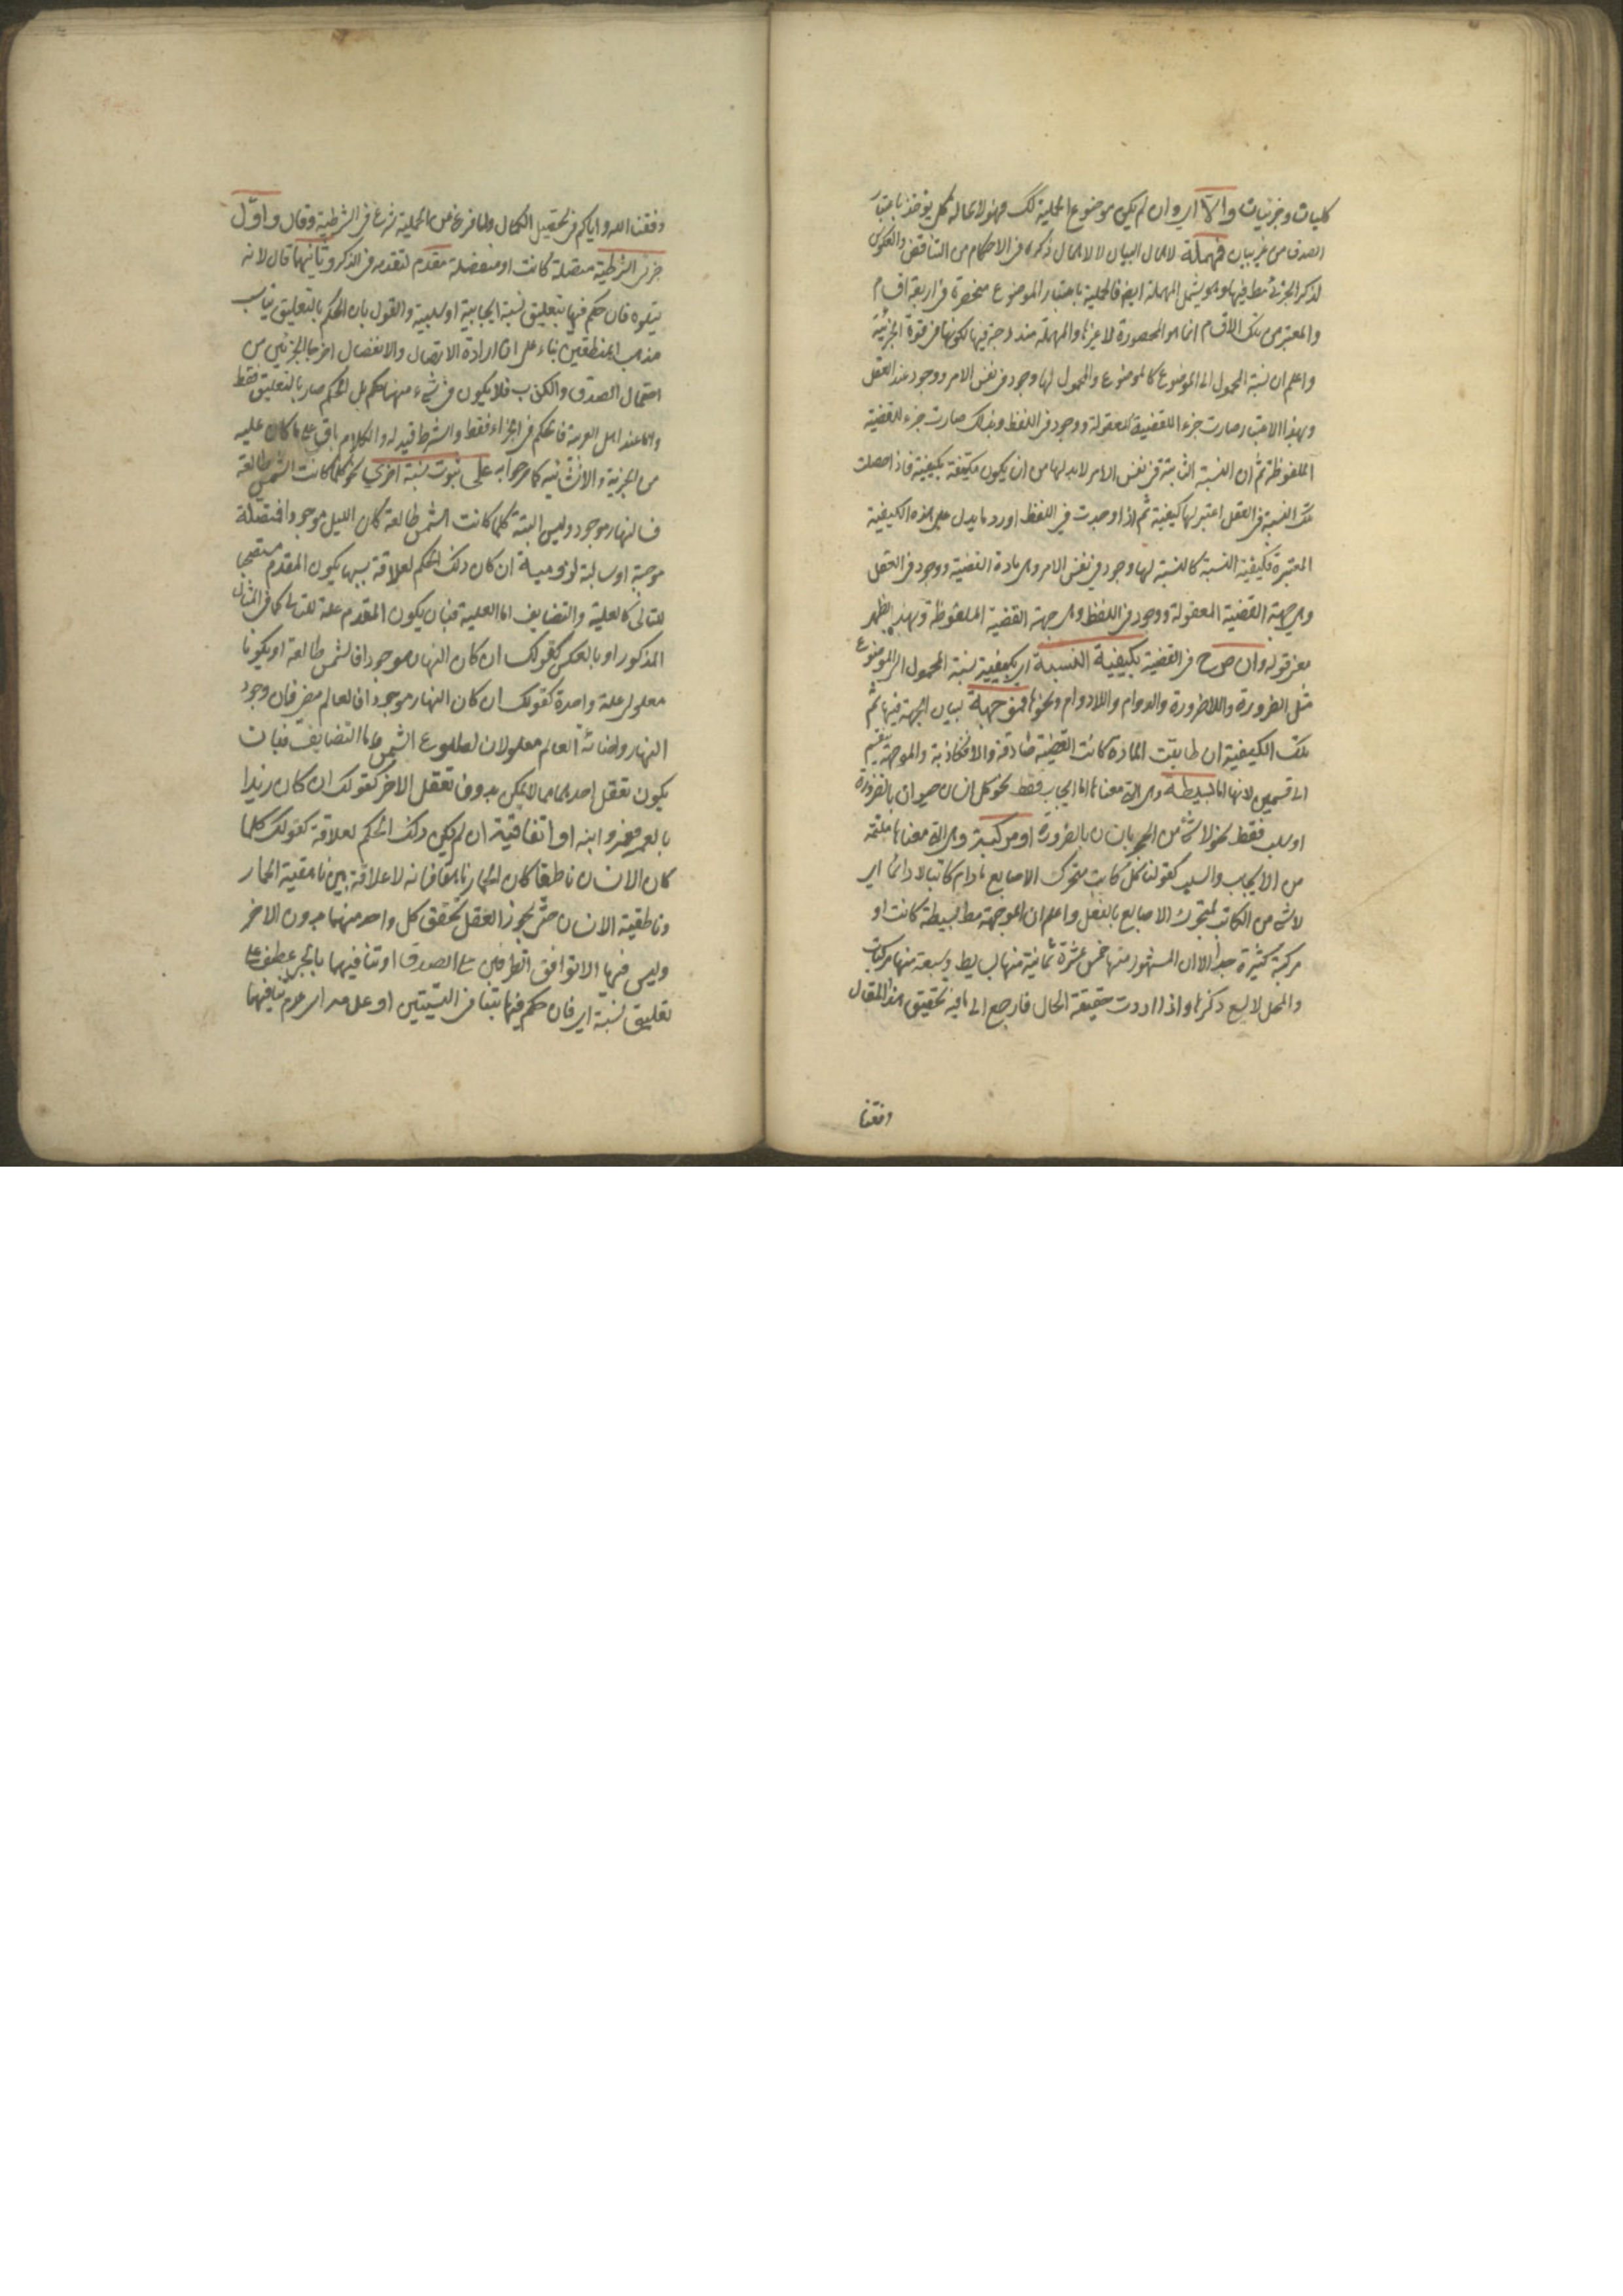 كليات وجزئيات والا اي وان لم يكن موضوع الحملية كك فهو لا محالة كلي يؤخذ باعتبار
الصدق من غير بيان فمهملة لاهمال البيان لا لاهمال ذكره في الاحكام من التناقض والعكوس
لذكر الجزئي فيها وهو يشمل المهملة ايضا فالحملية باعتبار الموضوع منحصرة في اربعة اقسام
والمعتبر من تلك الاقسام انما هو المحصورة لا غيرها والمهملة مندرجة فيها لكونها في قوة الجزئية
واعلم ان نسبة المحمول الى الموضوع كالموضوع والمحمول لها وجود في نفس الامر ووجود عند العقل
وبهذا الاعتبار صارت جزء للقضية المعقولة ووجود في اللفظ وبذلك صارت جزء للقضية
الملفوظة ثم ان النسبة الثابتة في نفس الامر لا بد لها من ان يكون مكيفة بكيفية فاذا حصلت
تلك النسبة في العقل اعتبر لها كيفية ثم اذا وجدت في اللفظ اورد ما يدل على هذه الكيفية
المعتبرة فكيفية النسبة كالنسبة لها وجود في نفس الامر وهي مادة القضية ووجود في العقل
وهي جهة القضية المعقولة ووجود في اللفظ وهي جهة القضية الملفوظة وبهذا يظهر
معنى قوله وان صرح في القضية بكيفية النسبة اي بكيفية نسبة المحمول الى الموضوع
مثل الضرورة واللاضرورة والدوام واللادوام ونحوها فموجهة لبيان الجهة فيها ثم
تلك الكيفية ان طابقت المادة كانت القضية صادقة والا فكاذبة والموجهة ينقسم
الى قسمين لانها اما بسيطة وهي التي معناها اما ايجاب فقط نحو كل انسان حيوان بالضرورة
او سلب فقط نحو لا شئ من الحجر بانسان بالضرورة او مركبة وهي التي معناها ملتئمة
من الايجاب والسلب كقولنا كل كاتب متحرك الاصابع ما دام كاتبا لا دائما اي
لا شئ من الكاتب بمتحرك الاصابع بالفعل واعلم ان الموجهة بسيطة كانت او
مركبة كثيرة جدا الا ان المشهور منها خمس عشرة ثمانية منها بسايط وسبعة منها مركبات
والمحل لا يسع ذكرها واذا اردت حقيقة الحال فارجع الى ما فيه تحقيق هذا المقال
وفقنا
وفقنا الله واياكم في تحصيل الكمال ولما فرغ من الحملية شرع في الشرطية وقال واول
جزئي الشرطية متصلة كانت او منفصلة مقدم لتقدمه في الذكر وثانيهما تال لانه
يتلوه فان حكم فيها بتعليق نسبة ايجابية او سلبية والقول بان الحكم بالتعليق يناسب
مذهب المنطقيين بناء على ان ارادة الاتصال والانفصال اخرجا الجزئين من
احتمال الصدق والكذب فلا يكون في شيء منهما حكم بل الحكم صار بالتعليق فقط
واما عند اهل العربية فالحكم في الجزاء فقط والشرط قيد له والكلام باق على ما كان عليه
من الخبرية والانشائية كما صرحوا به على ثبوت نسبة اخرى نحو كلما كانت الشمس طالعة
فالنهار موجود وليس البتة كلما كانت الشمس طالعة كان الليل موجودا فمتصلة
موجبة او سالبة لزومية ان كان ذلك الحكم لعلاقة بسببها يكون المقدم مستصحبا
للتالي كالعلية والتضايف اما العلية فبان يكون المقدم علة للتالي كما في المثال
المذكور او بالعكس كقولك ان كان النهار موجودا فالشمس طالعة او يكونا
معلولي علة واحدة كقولك ان كان النهار موجودا فالعالم مضئ فان وجود
النهار واضائة العالم معلولان لطلوع الشمس واما التضايف فبان
يكون تعقل احدهما مما لا يمكن بدون تعقل الاخر كقولك ان كان زيد ابا
لعمرو فعمرو ابنه او اتفاقية ان لم يكن ذلك الحكم لعلاقة كقولك كلما
كان الانسان ناطقا كان الحمار ناهقا فانه لا علاقة بين ناهقية الحمار
وناطقية الانسان حتى يجوز العقل تحقق كل واحد منهما بدون الاخر
وليس فيها الا توافق الطرفين على الصدق او تنافيهما بالجر عطف على
تعليق نسبة اي فان حكم فيها بتنافي النسبتين او عدمه اي عدم تنافيهما